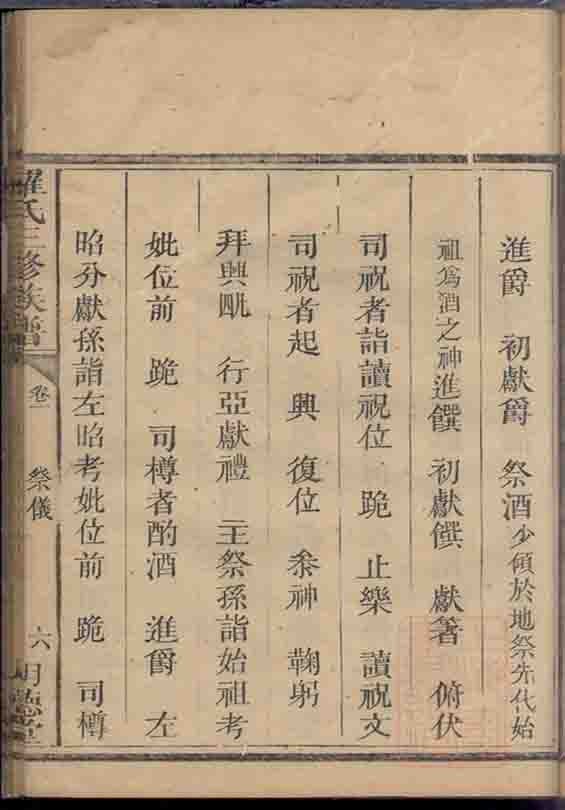 進爵　初獻爵　祭酒少傾於地祭先代始
祖爲酒之神進饌　初獻饌　獻箸　俯伏
司祝者詣讀祝位　跪　止樂　讀祝文
司祝者起　興　復位　叅神　鞠躬
拜興四　行亞獻禮　主祭孫詣始祖考
妣位前　跪　司樽者酌酒　進爵　左
昭分獻孫詣左昭考妣位前　跪　司樽
羅氏三修族譜　卷一　祭儀　六　明德堂